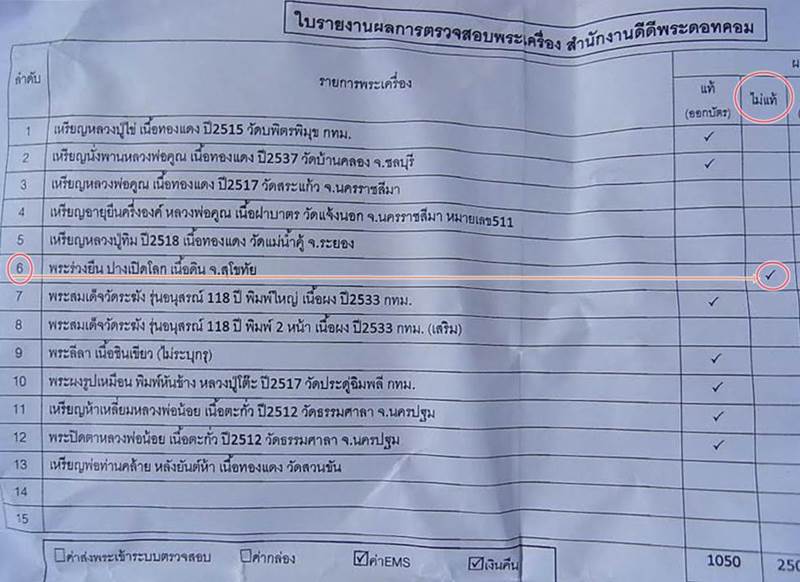 ใบรายงานผลการตรวจสอบพระเครื่อง สำนักงานดีดีพระดอทคอม
ลำดับ รายการพระเครื่อง แท้ (ออกบัตร) ไม่แท้
1 เหรียญหลวงปู่ไข่ เนื้อทองแดง ปี2515 วัดบพิตรพิมุข กทม. ✓
2 เหรียญนั่งพานหลวงพ่อคูณ เนื้อทองแดง ปี2537 วัดบ้านคลอง จ.ชลบุรี ✓
3 เหรียญหลวงพ่อคูณ เนื้อทองแดง ปี2517 วัดสระแก้ว จ.นครราชสีมา
4 เหรียญอายุยืนครึ่งองค์ หลวงพ่อคูณ เนื้อฝาบาตร วัดแจ้งนอก จ.นครราชสีมา หมายเลข511
5 เหรียญหลวงปู่ทิม ปี2518 เนื้อทองแดง วัดแม่น้ำคู้ จ.ระยอง
6 พระร่วงยืน ปางเปิดโลก เนื้อดิน จ.สุโขทัย ✓
7 พระสมเด็จวัดระฆัง รุ่นอนุสรณ์ 118 ปี พิมพ์ใหญ่ เนื้อผง ปี2533 กทม. ✓
8 พระสมเด็จวัดระฆัง รุ่นอนุสรณ์ 118 ปี พิมพ์ 2 หน้า เนื้อผง ปี2533 กทม. (เสริม)
9 พระลีลา เนื้อชินเขียว (ไม่ระบุกรุ) ✓
10 พระผงรูปเหมือน พิมพ์หันข้าง หลวงปู่โต๊ะ ปี2517 วัดประดู่ฉิมพลี กทม. ✓
11 เหรียญห้าเหลี่ยมหลวงพ่อน้อย เนื้อตะกั่ว ปี2512 วัดธรรมศาลา จ.นครปฐม ✓
12 พระปิดตาหลวงพ่อน้อย เนื้อตะกั่ว ปี2512 วัดธรรมศาลา จ.นครปฐม ✓
13 เหรียญพ่อท่านคล้าย หลังยันต์ห้า เนื้อทองแดง วัดสวนขัน
14
15
☐ค่าส่งพระเข้าระบบตรวจสอบ ☐ค่ากล่อง ☑ค่าEMS ☑เงินคืน 1050 250